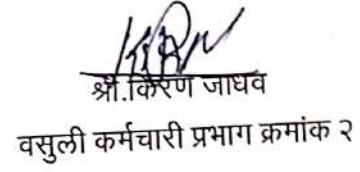 श्री.किरण जाधव
वसुली कर्मचारी प्रभाग क्रमांक २